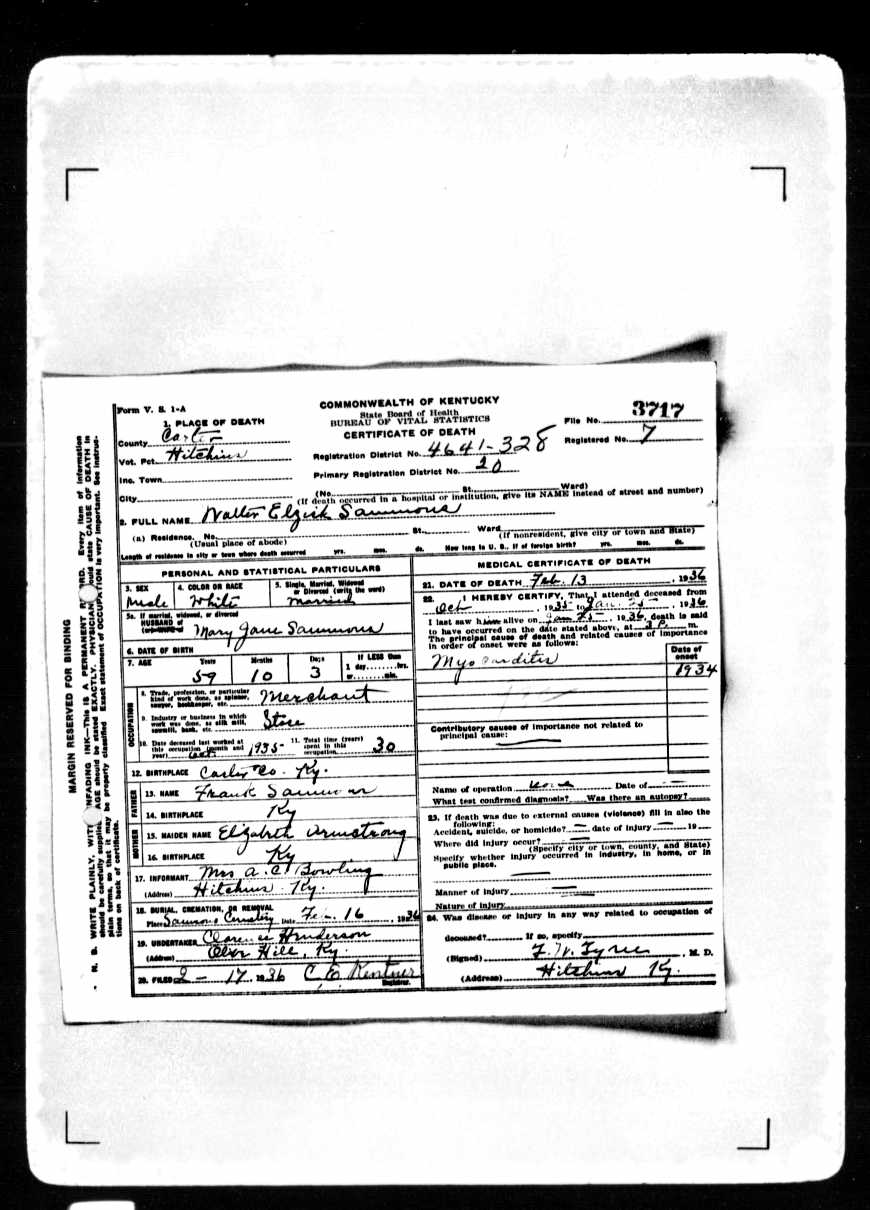 Form V. S. 1-A
COMMONWEALTH OF KENTUCKY
State Board of Health
BUREAU OF VITAL STATISTICS
CERTIFICATE OF DEATH
File No. 3717
Registered No. 7
1. PLACE OF DEATH
County Carter
Vot. Pct. Hitchins
Inc. Town
City
Registration District No. 4641-328
Primary Registration District No. 20
(No. St. Ward)
(If death occurred in a hospital or institution, give its NAME instead of street and number)
2. FULL NAME Walter Elzick Sammons
(a) Residence. No. St. Ward
(Usual place of abode) (If nonresident, give city or town and State)
Length of residence in city or town where death occurred yrs. mos. ds. How long in U. S., if of foreign birth? yrs. mos. ds.
PERSONAL AND STATISTICAL PARTICULARS
3. SEX Male
4. COLOR OR RACE White
5. Single, Married, Widowed or Divorced (write the word) Married
5a. If married, widowed, or divorced
HUSBAND of
(or) WIFE of Mary Jane Sammons
6. DATE OF BIRTH
7. AGE Years 59 Months 10 Days 3 If LESS than 1 day, hrs. or min.
OCCUPATION
8. Trade, profession, or particular kind of work done, as spinner, sawyer, bookkeeper, etc. Merchant
9. Industry or business in which work was done, as silk mill, sawmill, bank, etc. Store
10. Date deceased last worked at this occupation (month and year) Oct. 1935
11. Total time (years) spent in this occupation 30
12. BIRTHPLACE Carter Co. Ky.
FATHER
13. NAME Frank Sammon
14. BIRTHPLACE Ky
MOTHER
15. MAIDEN NAME Elizabeth Armstrong
16. BIRTHPLACE Ky
17. INFORMANT Mrs A. C. Bowling
(Address) Hitchins Ky.
18. BURIAL, CREMATION, OR REMOVAL
Place Sammons Cemetery Date Feb. 16, 1936
19. UNDERTAKER Clarence Henderson
(Address) Olive Hill, Ky.
20. FILED 2 - 17, 1936 C E Kentner
Registrar.
MEDICAL CERTIFICATE OF DEATH
21. DATE OF DEATH Feb. 13, 1936
22. I HEREBY CERTIFY, That I attended deceased from
Oct, 1935 to Jan. 25, 1936
I last saw him alive on Jan 25, 1936, death is said
to have occurred on the date stated above, at 3 P. m.
The principal cause of death and related causes of importance
in order of onset were as follows:
Date of onset
Myocarditis 1934
Contributory causes of importance not related to
principal cause:
Name of operation none Date of
What test confirmed diagnosis? Was there an autopsy?
23. If death was due to external causes (violence) fill in also the
following:
Accident, suicide, or homicide? date of injury 19
Where did injury occur?
(Specify city or town, county, and State)
Specify whether injury occurred in industry, in home, or in
public place.
Manner of injury
Nature of injury
24. Was disease or injury in any way related to occupation of
deceased? If so, specify
(Signed) J. W. Tyree, M. D.
(Address) Hitchins Ky.
MARGIN RESERVED FOR BINDING